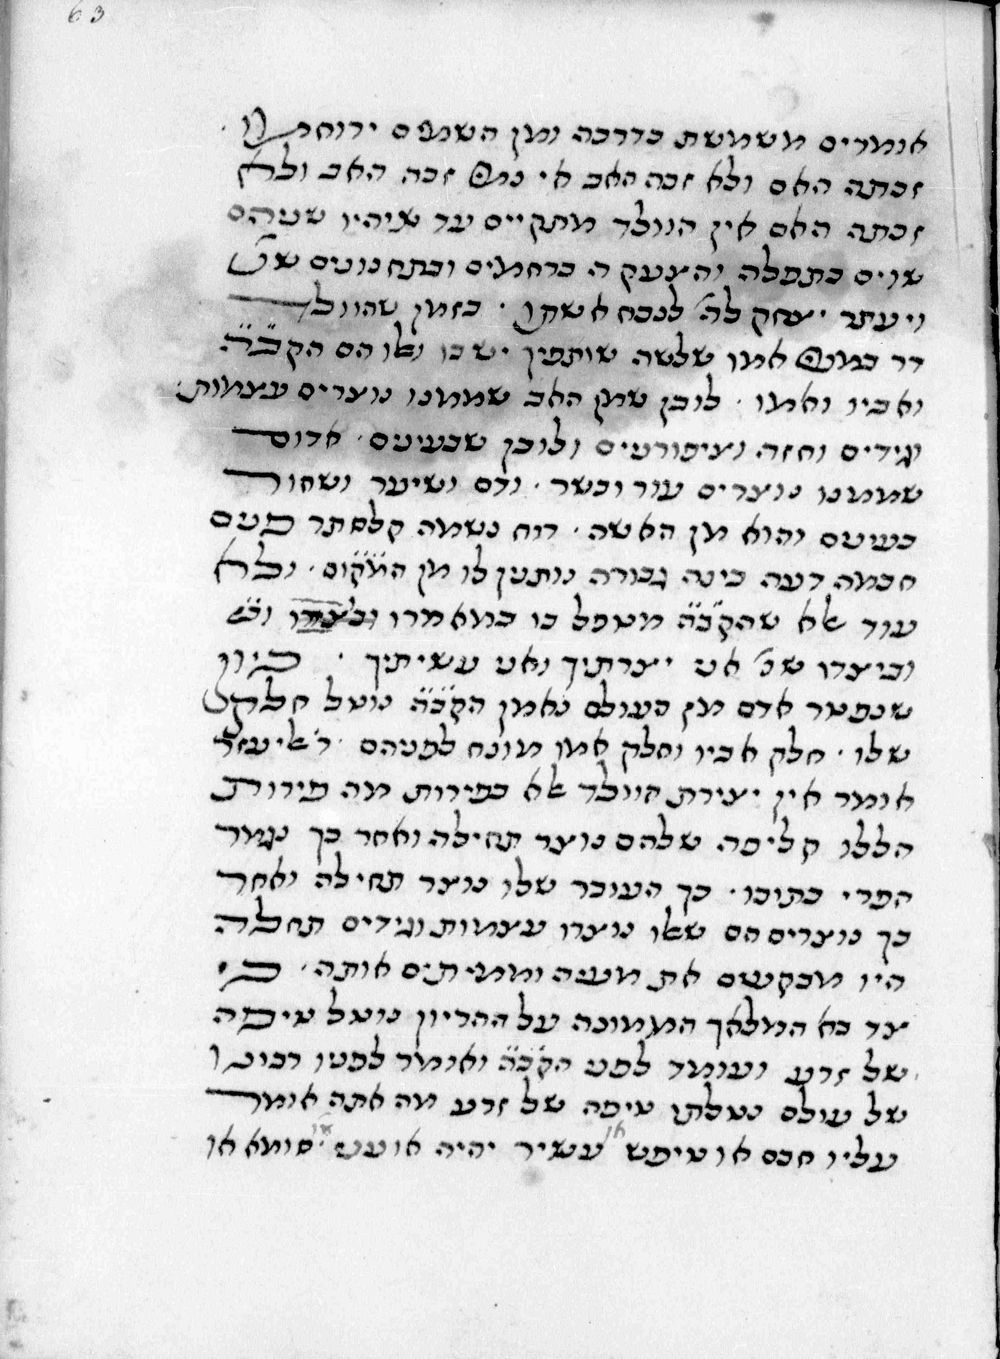 63
אומרים משמשת כדרכה ומן השמים ירוחמו
זכתה האם ולא זכה האב אי נמי זכה האב ולא
זכתה האם אין הוולד מתקיים עד שיהיו שניהם
שוים בתפלה והצעקה ברחמים ובתחנונים שנ׳
ויעתר יצחק לה׳ לנכח אשתו · בזמן שהוולד
דר במעי אמו שלשה שותפין יש בו ואלו הם הקב״ה
ואביו ואמו · לובן מן האב שממנו נוצרים עצמות
וגידים וחזה וציפורנים ולובן שבעינים · אדום
שממנו נוצרים עור ובשר · ודם ושיער ושחור
בעינים והוא מן האשה · רוח נשמה קלסתר פנים
חכמה דעה בינה גבורה נותנין לו מן המקום · ולא
עוד אלא שהקב״ה מטפל בו במאמרו
וביצרו שנ׳ אני יצרתיך ואני עשיתיך · כיון
שנפטר אדם מן העולם נאמן הקב״ה נוטל חלקו
שלו · חלק אביו וחלק אמו מונח לפניהם · ר׳ אליעזר
אומר אין יצירת הוולד אלא כפירות מה פירות
הללו קליפה שלהם נוצר תחילה ואחר כך נגמר
הפרי בתוכו · כך העובר שלו נוצר תחילה ואחר
כך נוצרים הם שאלו נוצרו עצמות וגידים תחלה
היו מבקשים את מעיה וממיתים אותה · כי
צד בא המלאך הממונה על ההריון נוטל טיפה
של זרע ועומד לפני הקב״ה ואומר לפניו רבונו
של עולם נטלתי טיפה של זרע מה אתה אומר
עליו חכם או טיפש או עשיר יהיה או עני או סומא או